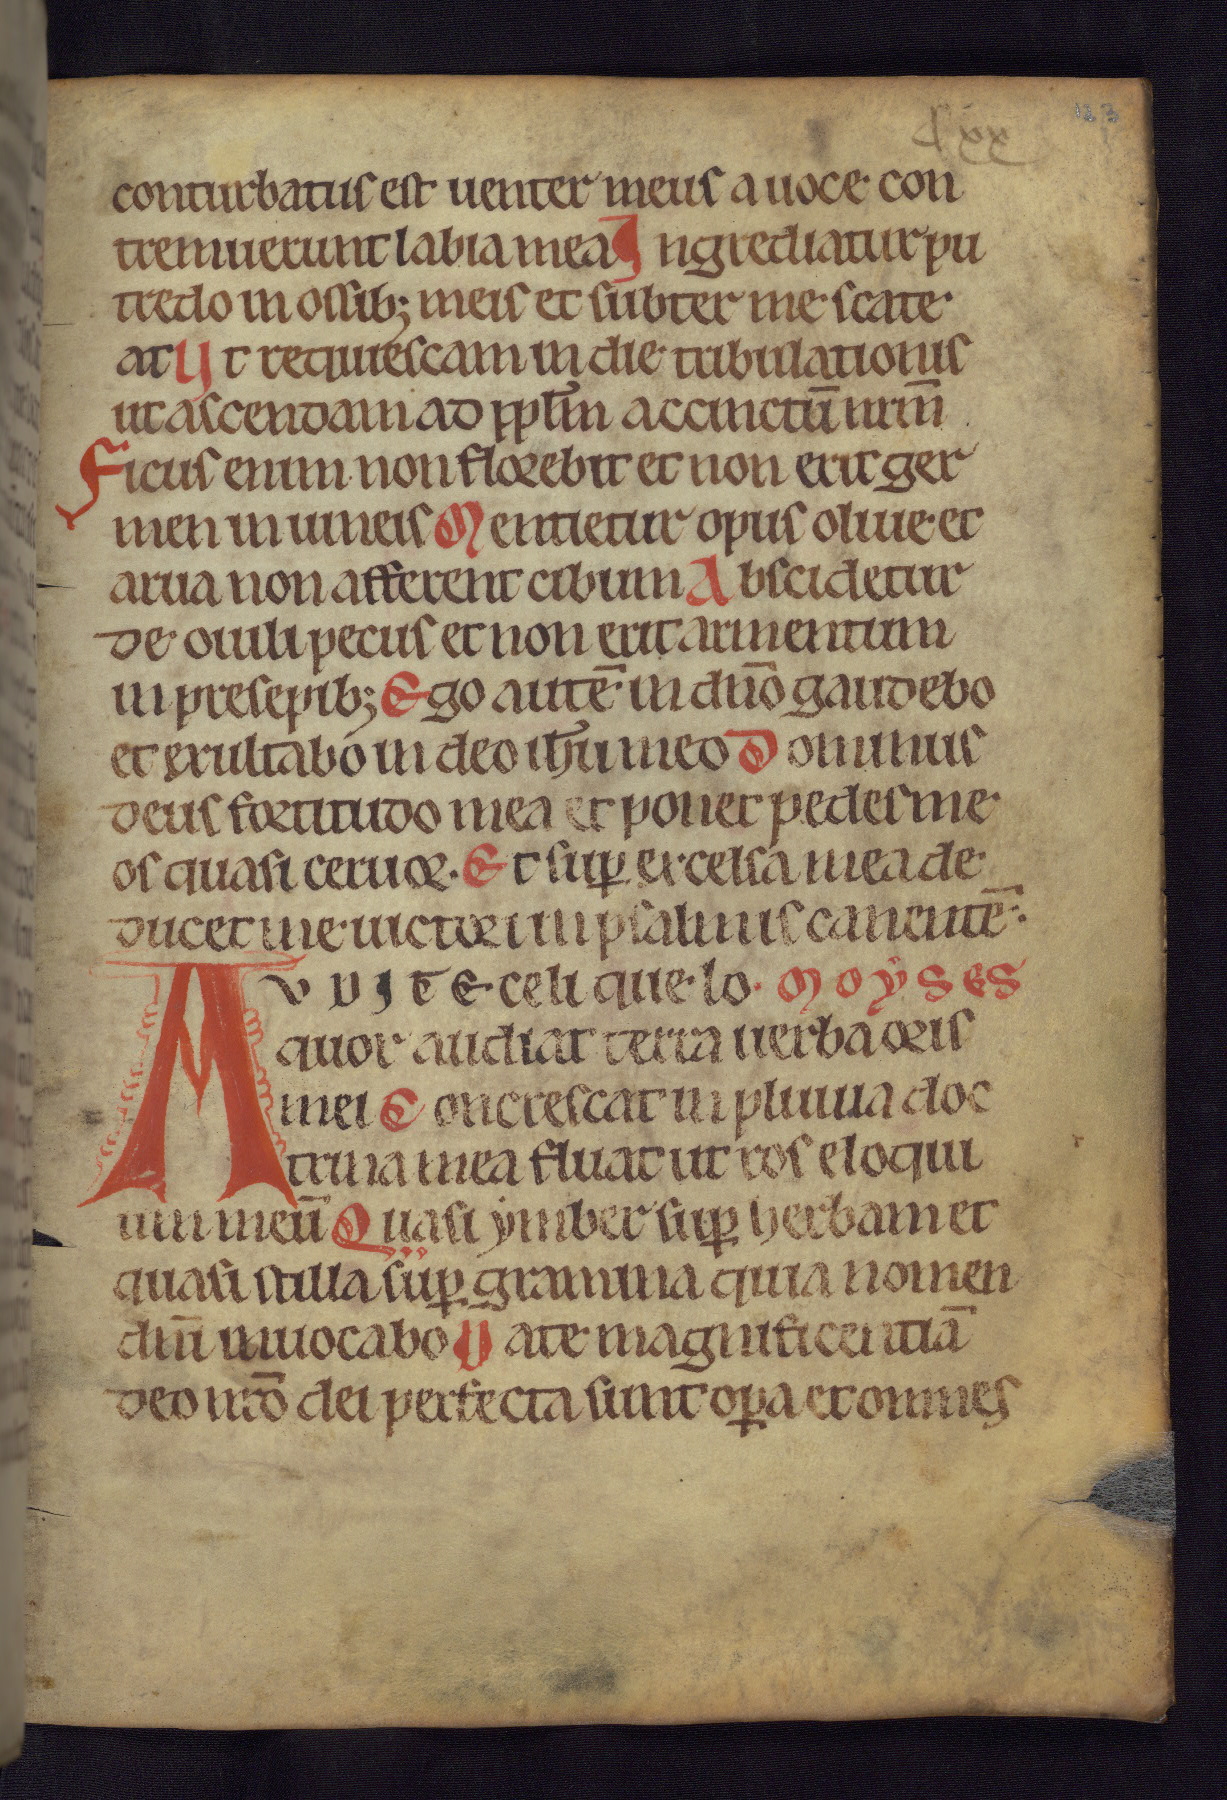 123
cxx
conturbatus est uenter meus a uoce con
tremuerunt labia mea Ingrediatur pu
tredo in ossib; meis et subter me scate
at Ut requiescam in die tribulationis
ut ascendam ad pplm̄ accinctū nr̄m
Ficus enim non florebit et non erit ger
men in uineis Mentietur opus oliue et
arua non afferent cibum Abscidetur
de ouili pecus et non erit armentum
in presepib; Ego autē in dn̄o gaudebo
et exultabo in deo ihū meo Dominus
deus fortitudo mea et ponet pedes me
os quasi ceruor. Et sup̱ excelsa mea de
ducet me uictori in psalmis canentē.
AUDITE celi que lo. MOYSES
quor audiat terra uerba oris
mei Concrescat in pluuia doc
trina mea fluat ut ros eloqui
um meū Quasi ymber sup̱ herbam et
quasi stilla sup̱ gramina quia nomen
dn̄i inuocabo Date magnificentiā
deo nr̄o dei perfecta sunt op̱a et omnes